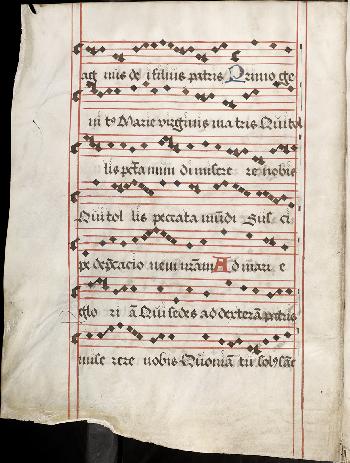 ag nus dei filius patris Primo ge
nit9 Marie virginis ma tris Qui tol
lis pctā mun di misere re nobis
Qui tol lis peccata mūdi Sus ci
pe depcacio nem nrām Ad mari e
glo ri ā Qui sedes ad dexterā patris
mise rere nobis Quoniā tu sol9 sāc